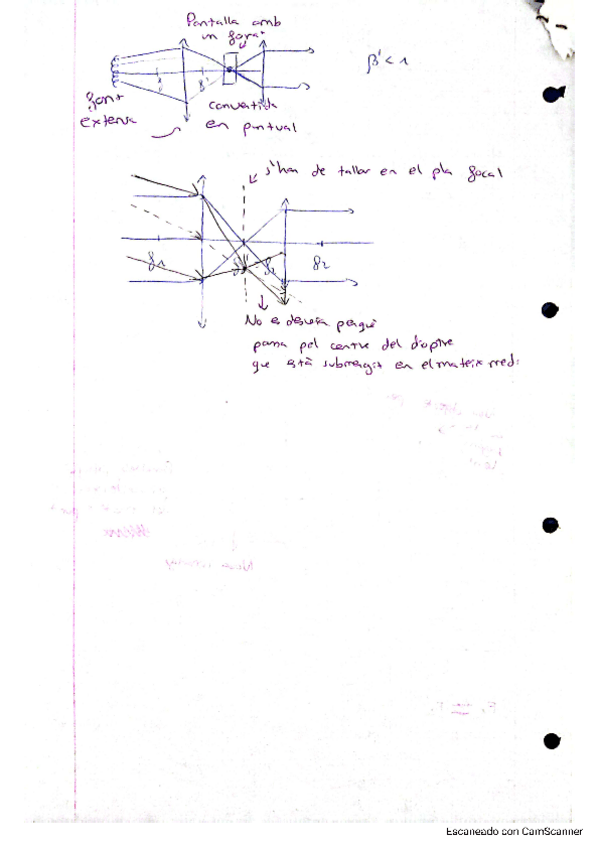 Pantalla amb
un forat
β' < 1
f
f'
Font
extensa
convertida
en puntual
s'han de tallar en el pla focal
f1
f2
f2
No es desvia perquè
passa pel centre del dioptre
que està submergit en el mateix medi
Escaneado con CamScanner